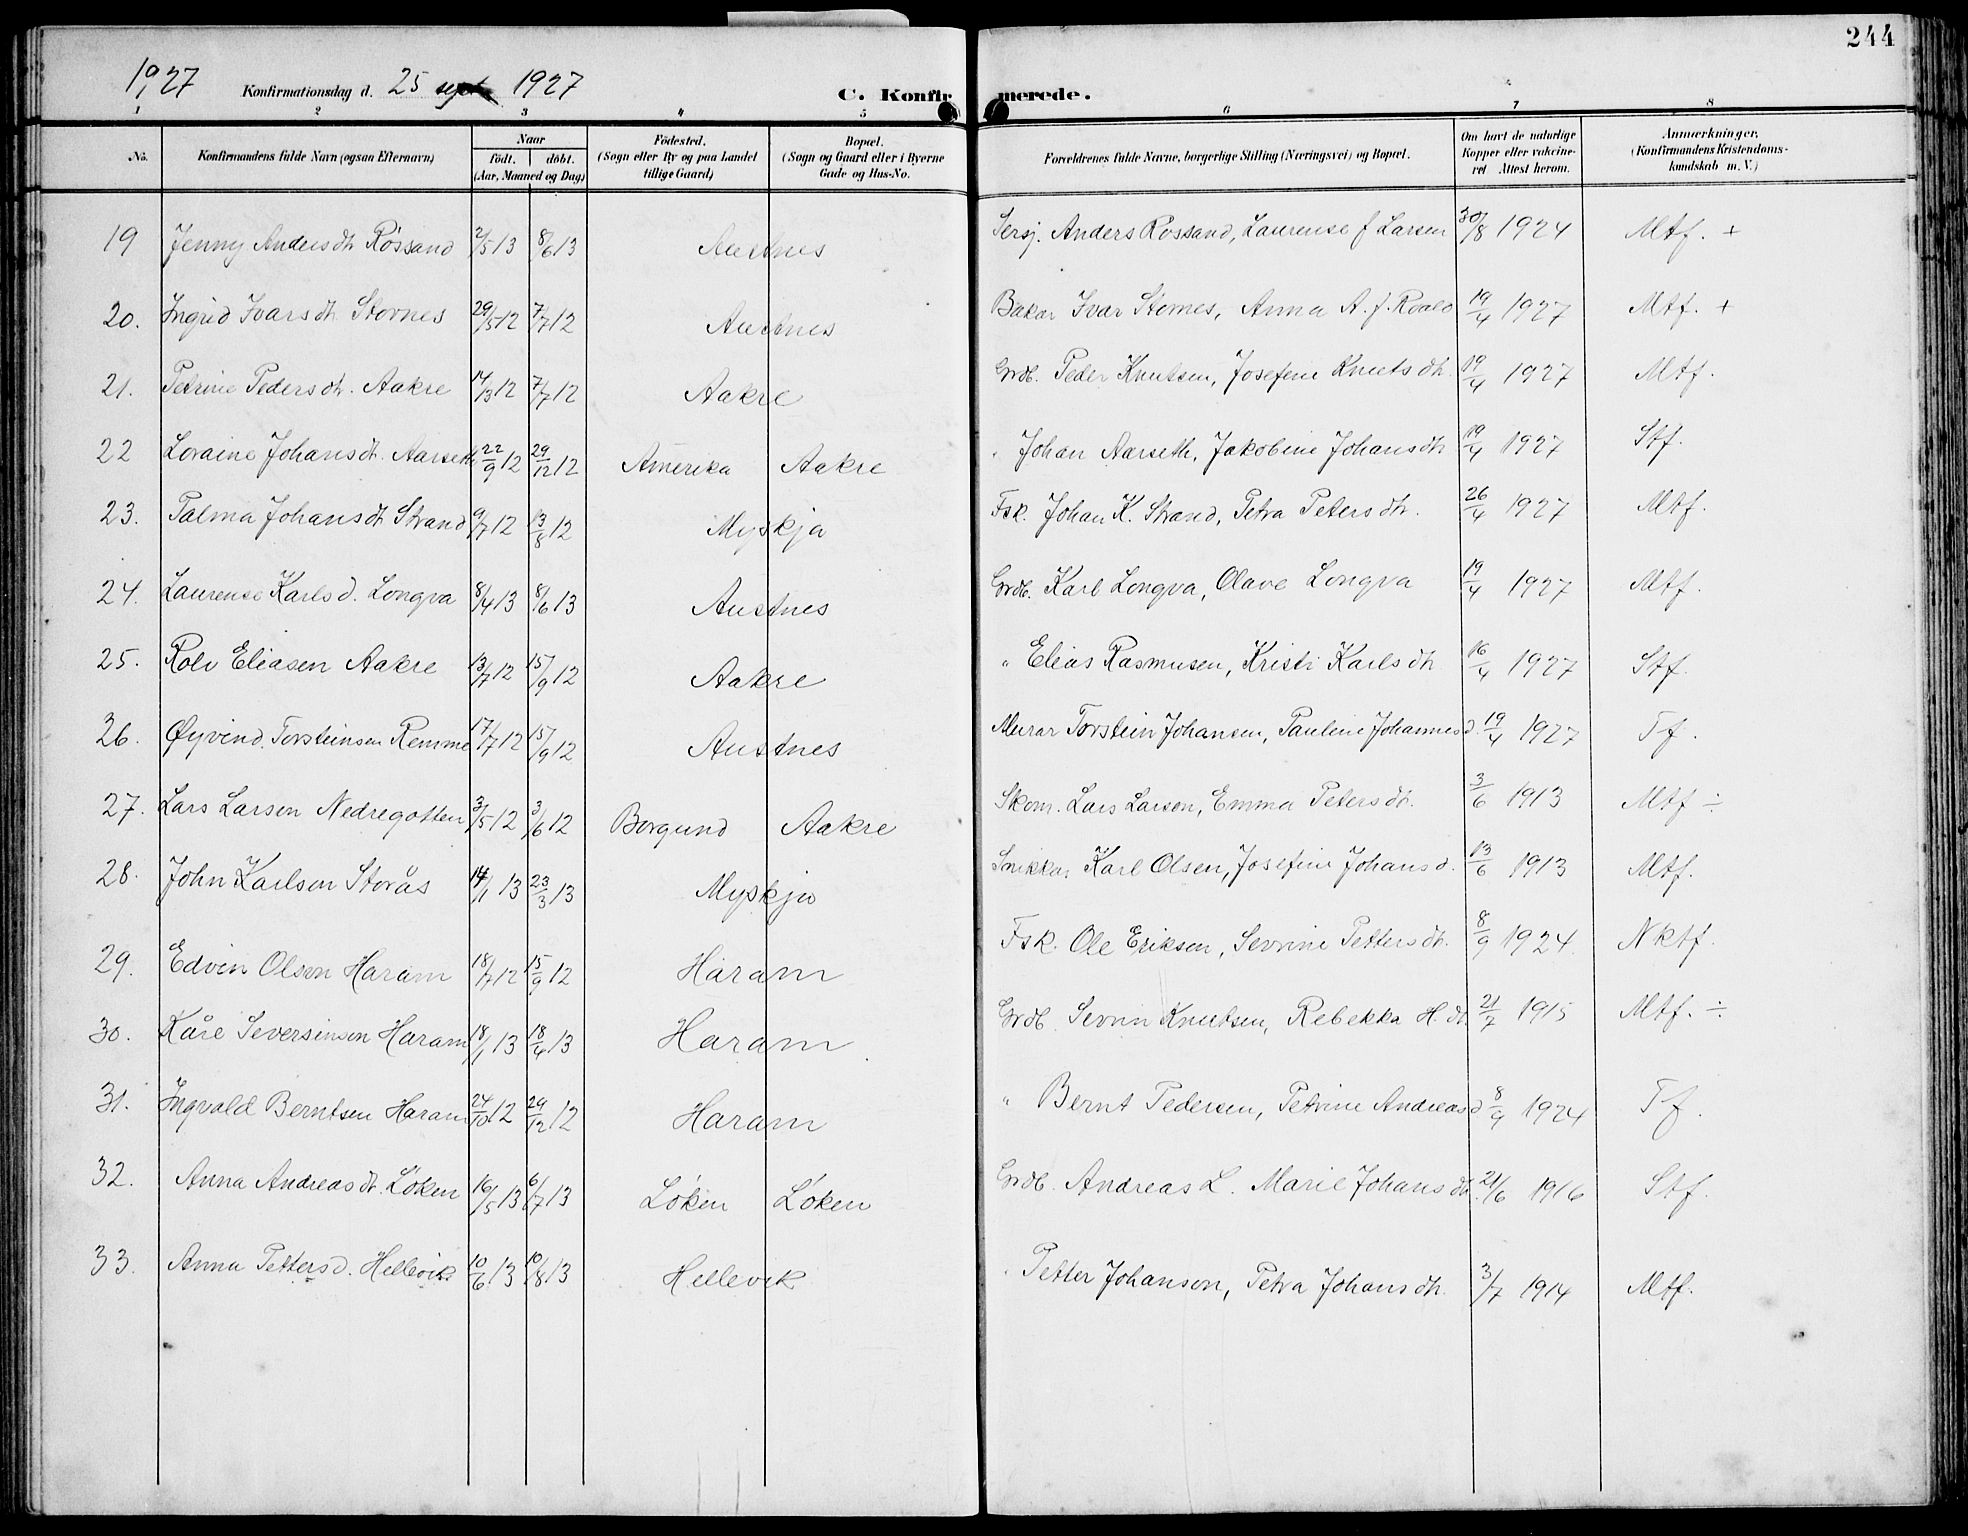 244
1927 Konfirmationsdag d. 25 sept. 1927 C. Konfirmerede.
1 2 3 4 5 6 7 8
No. Konfirmandens fulde Navn (ogsaa Efternavn) Naar födt. döbt. (Aar, Maaned og Dag) Födested. (Sogn eller By og paa Landet tillige Gaard) Bopæl. (Sogn og Gaard eller i Byerne Gade og Hus-No. Forældrenes fulde Navne, borgerlige Stilling (Næringsvei) og Bopæl. Om havt de naturlige Kopper eller vakcineret Attest herom. Anmærkninger, (Konfirmandens Kristendomskundskab m. V.)
19 Jenny Andersdt Røssand 2/5 13 8/6 13 Austnes Sersj. Anders Røssand, Laurense f Larsen 30/8 1924 Mtf. +
20. Ingrid Ivarsdt. Stornes 29/5 12 7/7 12 Austnes Bakar Ivar Stornes, Anna A. f. Roald 19/4 1927 Mtf. +
21. Petrine Pedersdt. Aakre 14/3 12 7/7 12 Aakre Grdb. Peder Knutsen, Josefine Knutsdt. 19/4 1927 Mtf.
22 Loraine Johansdt. Aarseth 22/9 12 29/12 12 Amerika Aakre " Johan Aarseth, Jakobine Johansdt 19/4 1927 Stf.
23. Palma Johansdt Strand 9/7 12 13/8 12 Myskja Fsk. Johan K. Strand, Petra Petersdt. 26/4 1927 Mtf.
24. Laurense Karlsd. Longva 8/4 13 8/6 13 Austnes Grdb. Karl Longva, Olave Longva 19/4 1927 Mtf.
25. Rolv Eliasen Aakre 13/7 12 15/9 12 Aakre " Elias Rasmusen, Kristi Karlsdt 16/4 1927 Stf.
26. Øyvind Torsteinsen Remme 17/7 12 15/9 12 Austnes Murar Torstein Johansen, Pauline Johannesd. 19/4 1927 Tf.
27. Lars Larsen Nedregotten 3/5 12 3/6 12 Borgund Aakre Skom. Lars Larsen, Emma Petersdt. 3/6 1913 Mtf ÷
28. John Karlsen Storås 14/1 13 23/3 13 Myskja Snikkar Karl Olsen, Josefine Johansd. 13/6 1913 Mtf.
29. Edvin Olsen Haram 18/7 12 15/9 12 Haram Fsk. Ole Eriksen, Sevrine Pettersdt. 8/9 1924. Nktf.
30. Kåre Seversinsen Haram 18/1 13 18/4 13 Haram Grdb. Sevrin Knutsen, Rebekka H. dt. 21/7 1915 Mtf. ÷
31. Ingvald Berntsen Haram 24/10 12 29/12 12 Haram " Bernt Pedersen, Petrine Andreasd 8/9 1924 Tf.
32. Anna Andreasdt. Løken 16/5 13 6/7 13 Løken Løken Grdb. Andreas L. Marie Johansdt. 21/6 1916 Stf.
33. Anna Pettersd. Hellevik 10/6 13 10/8 13 Hellevik " Petter Johanson, Petra Johansdt. 3/7 1914 Mtf.